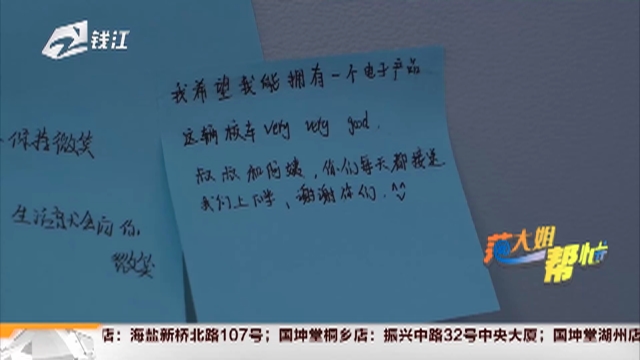 钱江
我希望我能拥有一个电子产品
这辆校车very very good.
叔叔和阿姨，你们每天都接送
我们上下学，谢谢你们.^^
保持微笑
生活才会向你
微笑
范大姐
帮忙
店：海盐新桥北路107号；国坤堂桐乡店：振兴中路32号中央大厦；国坤堂湖州店